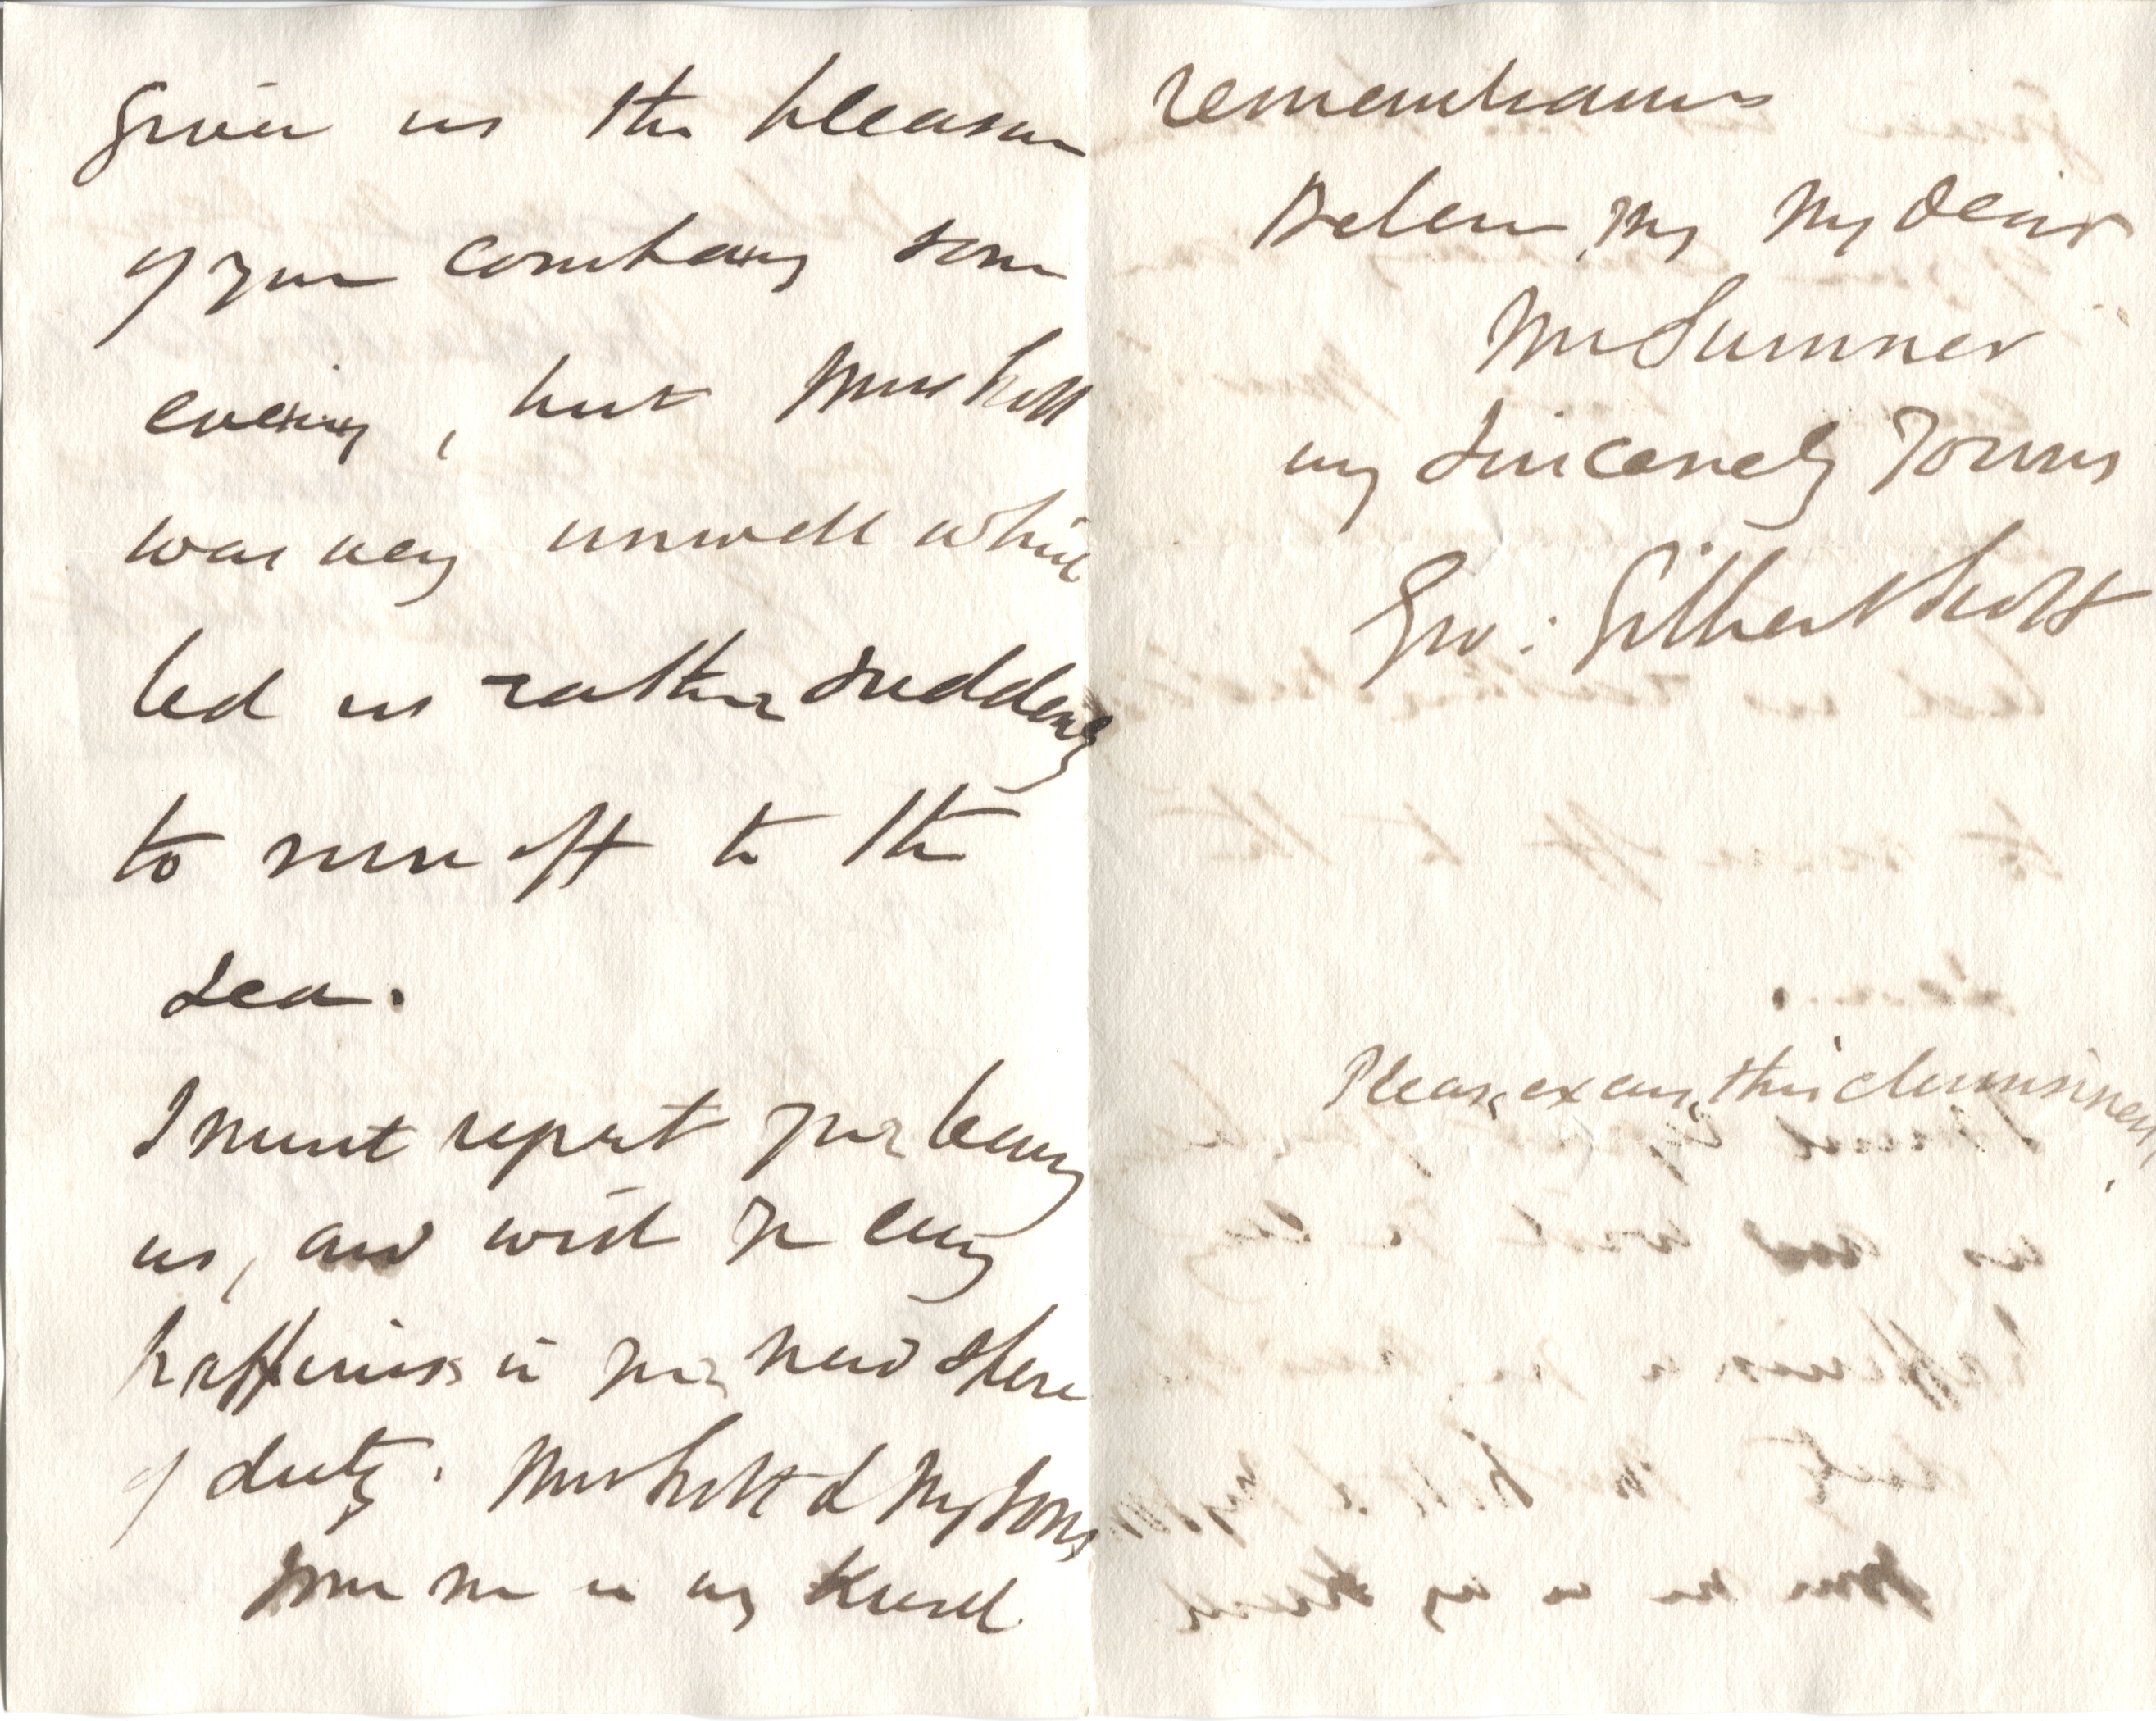 given us the pleasure
of your company some
evening, but Mrs Scott
was very unwell which
led us rather suddenly
to run off to the
sea.
I must regret your leaving
us, and wish you every
happiness in your new sphere
of duty. Mrs Scott & My Sons
join me in very kind
remembrances
Believe me My dear
Mr Sumner
very Sincerely Yours
Geo: Gilbert Scott
Please excuse this clumsiness.